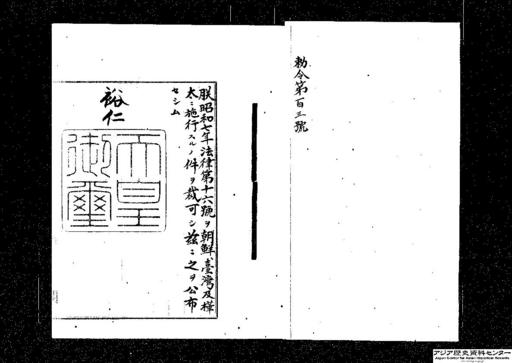 勅令第百三號
朕昭和七年法律第十六號ヲ朝鮮、臺灣及樺
太ニ施行スルノ件ヲ裁可シ茲ニ之ヲ公布
セシム
裕仁
天皇
御璽
アジア歴史資料センター
Japan Center for Asian Historical Records